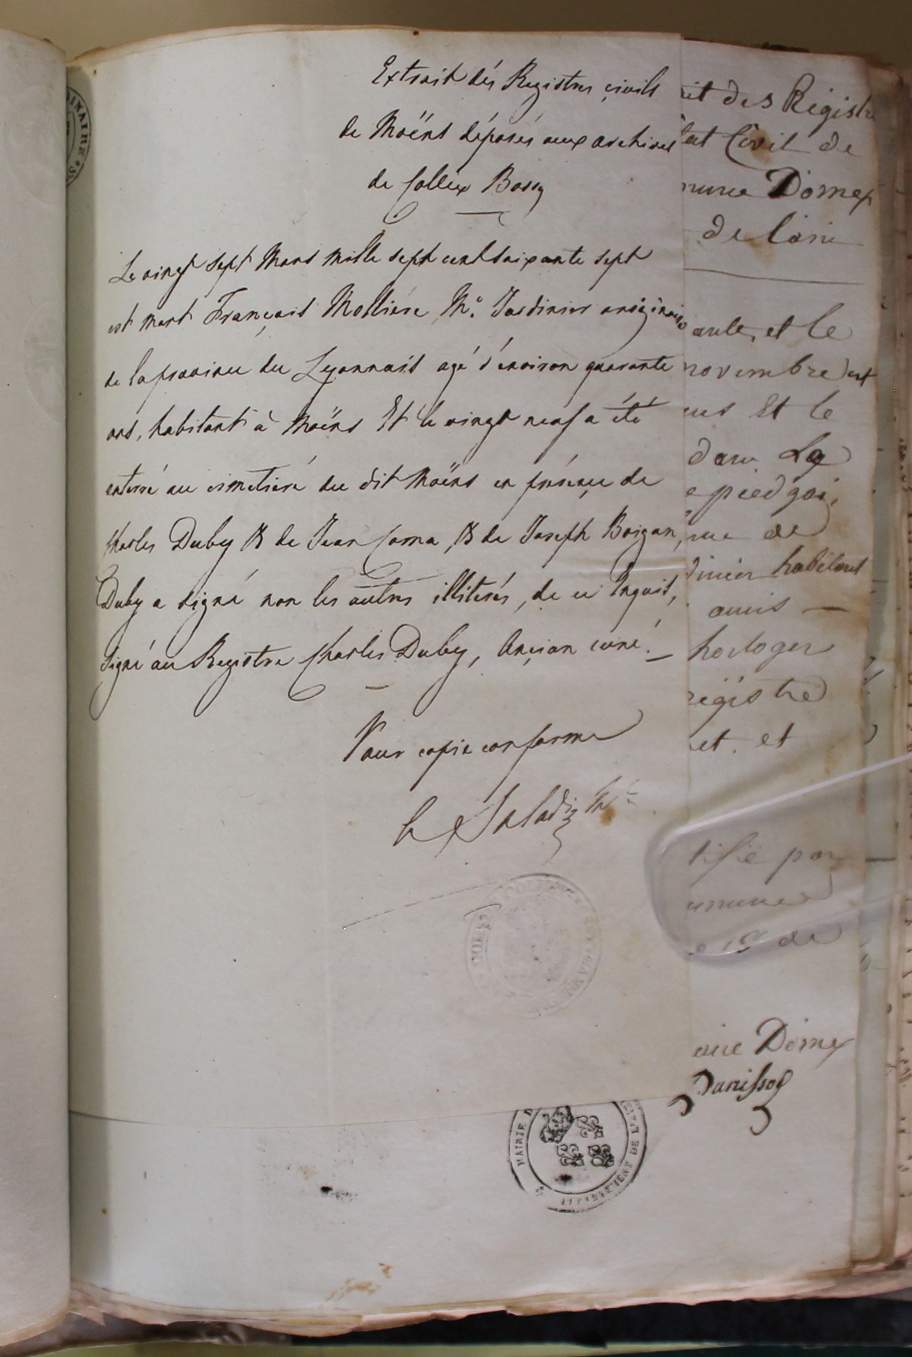 Extrait dés Registres civils
de Moëns déposés aux archives
de Collex Bossy
Le vingt sept Mars mille sept cent soixante sept
est mort François Mollière, Me. Jardinier originaire
de la province du Lyonnais agé d'environ quarante
ans, habitant à Moëns Et le vingt neuf a été
enterré au cimetière du dit Moëns en présence de
Charles Duby & de Jean Corna, & de Joseph
Duby a signé non les autres illiterés, de ce Enquis,
Signé au Registre Charles Duby, Ancian curé. —
Pour copie conforme
le
it des Régistre
tat Civil de
mune Domex
de
et le
novembre
Et le
dans La
piedgai,
de
habitant
amis —
horloger
régistre
et. et
tifié par
de
Domex
Danissos
MAIRIE
DE